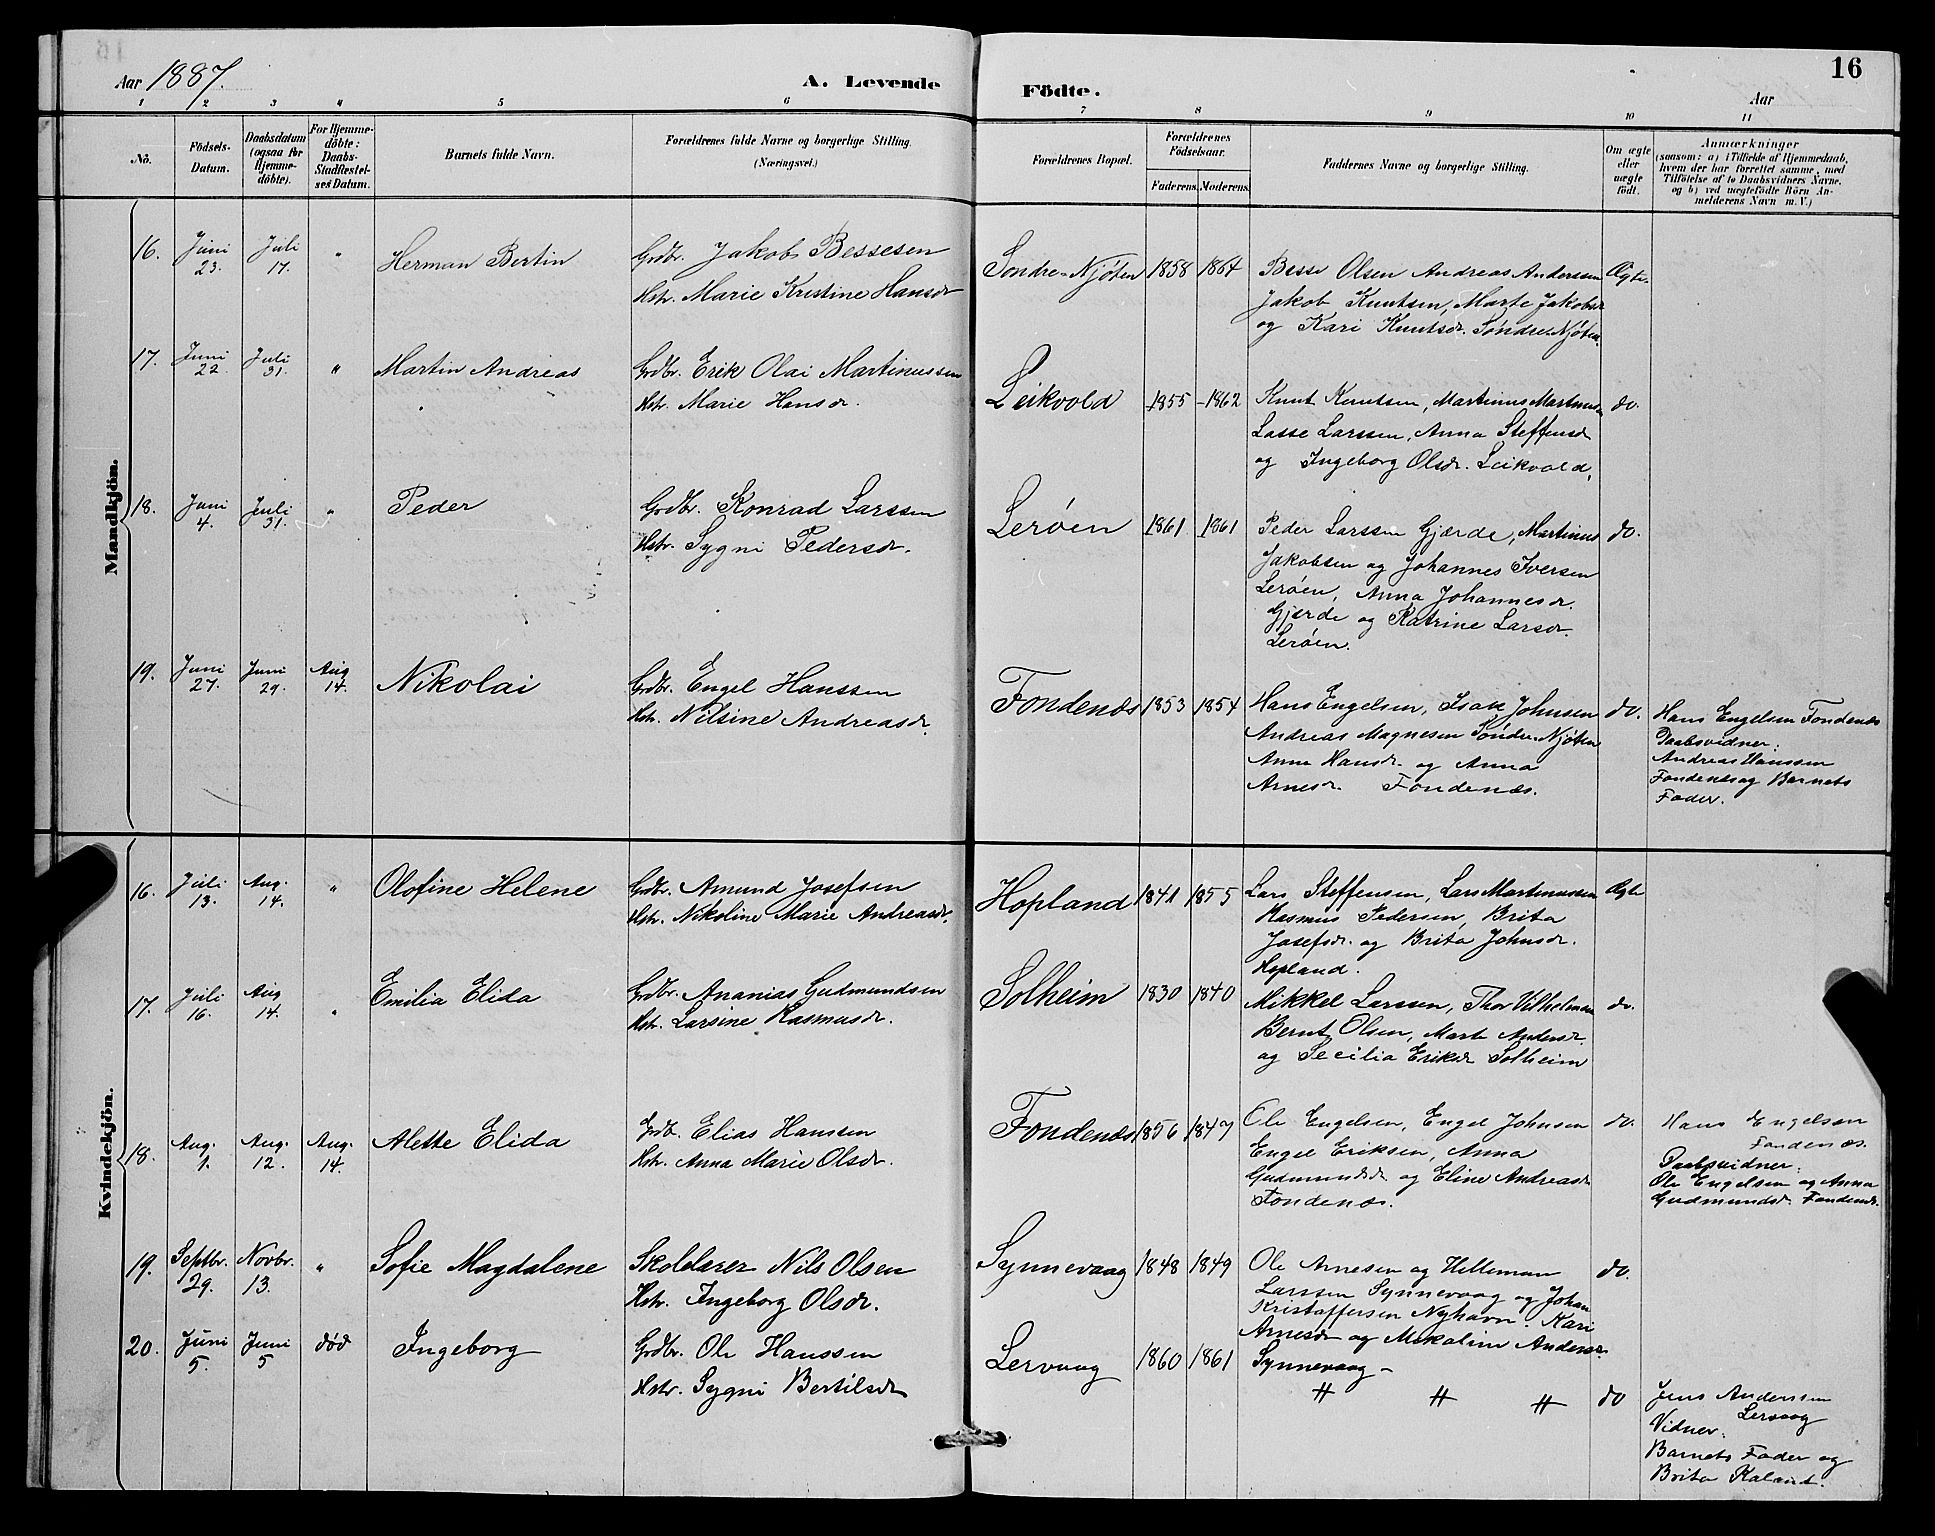 Aar 1887.
A. Levende Födte.
16
Aar
1 2 3 4 5 6 7 8 9 10 11
No.
Födsels-Datum.
Daabsdatum (ogsaa for Hjemme-döbte).
For Hjemme-döbte: Daabs-Stadfæstel-ses Datum.
Barnets fulde Navn.
Forældrenes fulde Navne og borgerlige Stilling. (Næringsvei.)
Forældrenes Bopæl.
Forældrenes Födselsaar.
Faderens. Moderens.
Faddernes Navne og borgerlige Stilling.
Om ægte eller uægte födt.
Anmærkninger
(saasom: a) i Tilfælde af Hjemmedaab,
hvem der har forrettet samme, med
Tilföielse af to Daabsvidners Navne,
og b) ved uægtefödte Börn An-
melderens Navn m. V.)
Mandkjön.
16. Juni 23. Juli 17. " Herman Bertin
Grdbr. Jakob Bessesen
Hstr. Marie Kristine Hansdr
Söndre-Njøten 1858 1864
Besse Olsen Andreas Anderssen
Jakob Knutsen, Marte Jakobsdr
og Kari Knutsdr. Söndre Njøten.
Ægte.
17. Juni 22. Juli 31. " Martin Andreas
Grdbr. Erik Olai Martinussen
Hstr. Marie Hansdr.
Leikvold 1855 1862
Knut Knutsen, Martinus Martinusn
Lasse Larssen, Anna Steffensdr
og Ingeborg Olsdr. Leikvold.
do.
18. Juni 4. Juli 31. " Peder
Grdbr. Konrad Larssen
Hstr. Sygni Pedersdr.
Lerøen 1861 1861
Peder Larssen Gjærde, Martinus
Jakobsen og Johannes Iversen
Lerøen, Anna Johannesdr.
Gjerde og Katrine Larsdr.
Lerøen.
do.
19. Juni 27. Juni 29. Aug 14. Nikolai
Grdbr. Engel Hanssen
Hstr. Nilsine Andreasdr.
Fondenæs 1853 1854
Hans Engelsen, Isak Johnsen
Andreas Magnesen Söndre Njøten
Anna Hansdr. og Anna
Arnesdr. Fondenæs.
do.
Hans Engelsen Fondenæs
Daabsvidner:
Andreas Hanssen
Fondenæs og Barnets
Fader.
Kvindekjön.
16. Juli 13. Aug. 14. " Olofine Helene
Grdbr. Amund Josefsen
Hstr. Nikoline Marie Andreasdr.
Hopland 1841 1855
Lars Steffensen, Lars Martinussen
Rasmus Pedersen, Brita
Josefsdr. og Brita Johnsdr.
Hopland.
Ægte
17. Juli 16. Aug 14. " Emilia Elida
Grdbr. Ananias Gudmundsen
Hstr. Larsine Rasmusdr.
Solheim 1830 1840
Mikkel Larssen, Thor Vilhelmsen
Bernt Olsen, Marte Andersdr
og Secilia Eriksdr Solheim
do.
18. Aug. 1. Aug. 12. Aug. 14. Alette Elida
Grdb. Elias Hanssen
Hstr. Anna Marie Olsdr.
Fondenæs 1856 1847
Ole Engelsen, Engel Johnsen
Engel Eriksen, Anna
Gudmundsdr og Eline Andreasdr
Fondenæs.
do.
Hans Engelsen
Fondenæs.
Daabsvidner:
Ole Engelsen og Anna
Gudmundsdr. Fondenæs.
19. Septbr. 29. Novbr. 13. " Sofie Magdalene
Skolelærer Nils Olsen
Hstr. Ingeborg Olsdr.
Synnevaag 1848 1849
Ole Arnesen og Hilleman
Larssen Synnevaag og Johan
Kristoffersen Nyhavn. Kari
Arnesdr og Mikaline Andersdr.
Synnevaag -
do.
20. Juni 5. Juni 5 død Ingeborg
Grdbr. Ole Hanssen
Hstr. Sygni Bertilsdr
Lervaag 1860 1861
" " "
do
Jens Anderssen
Lervaag
Vidner.
Barnets Fader og
Brita Kaland.